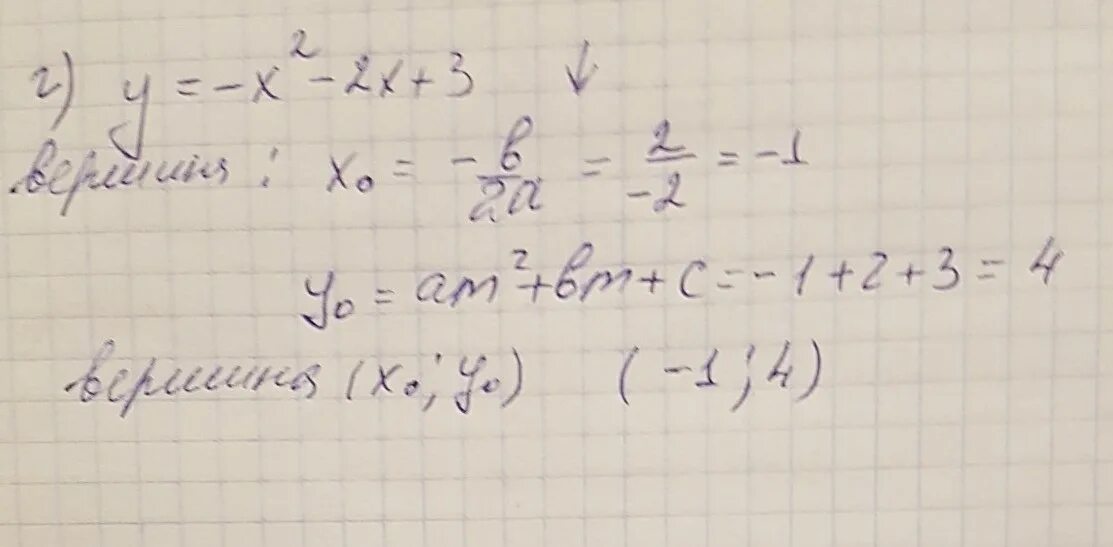 г) y = -x² - 2x + 3 ↓
вершина : x₀ = -в/2a = 2/-2 = -1
y₀ = am² + вm + c = -1 + 2 + 3 = 4
вершина (x₀; y₀) (-1; 4)